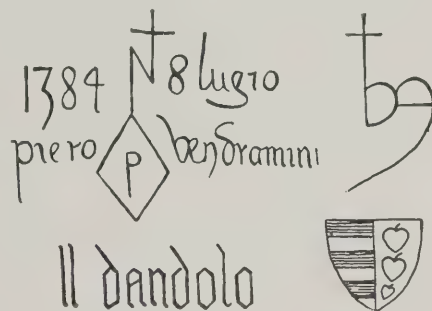 1384 N 8 lugio
piero P bendramini
II dandolo